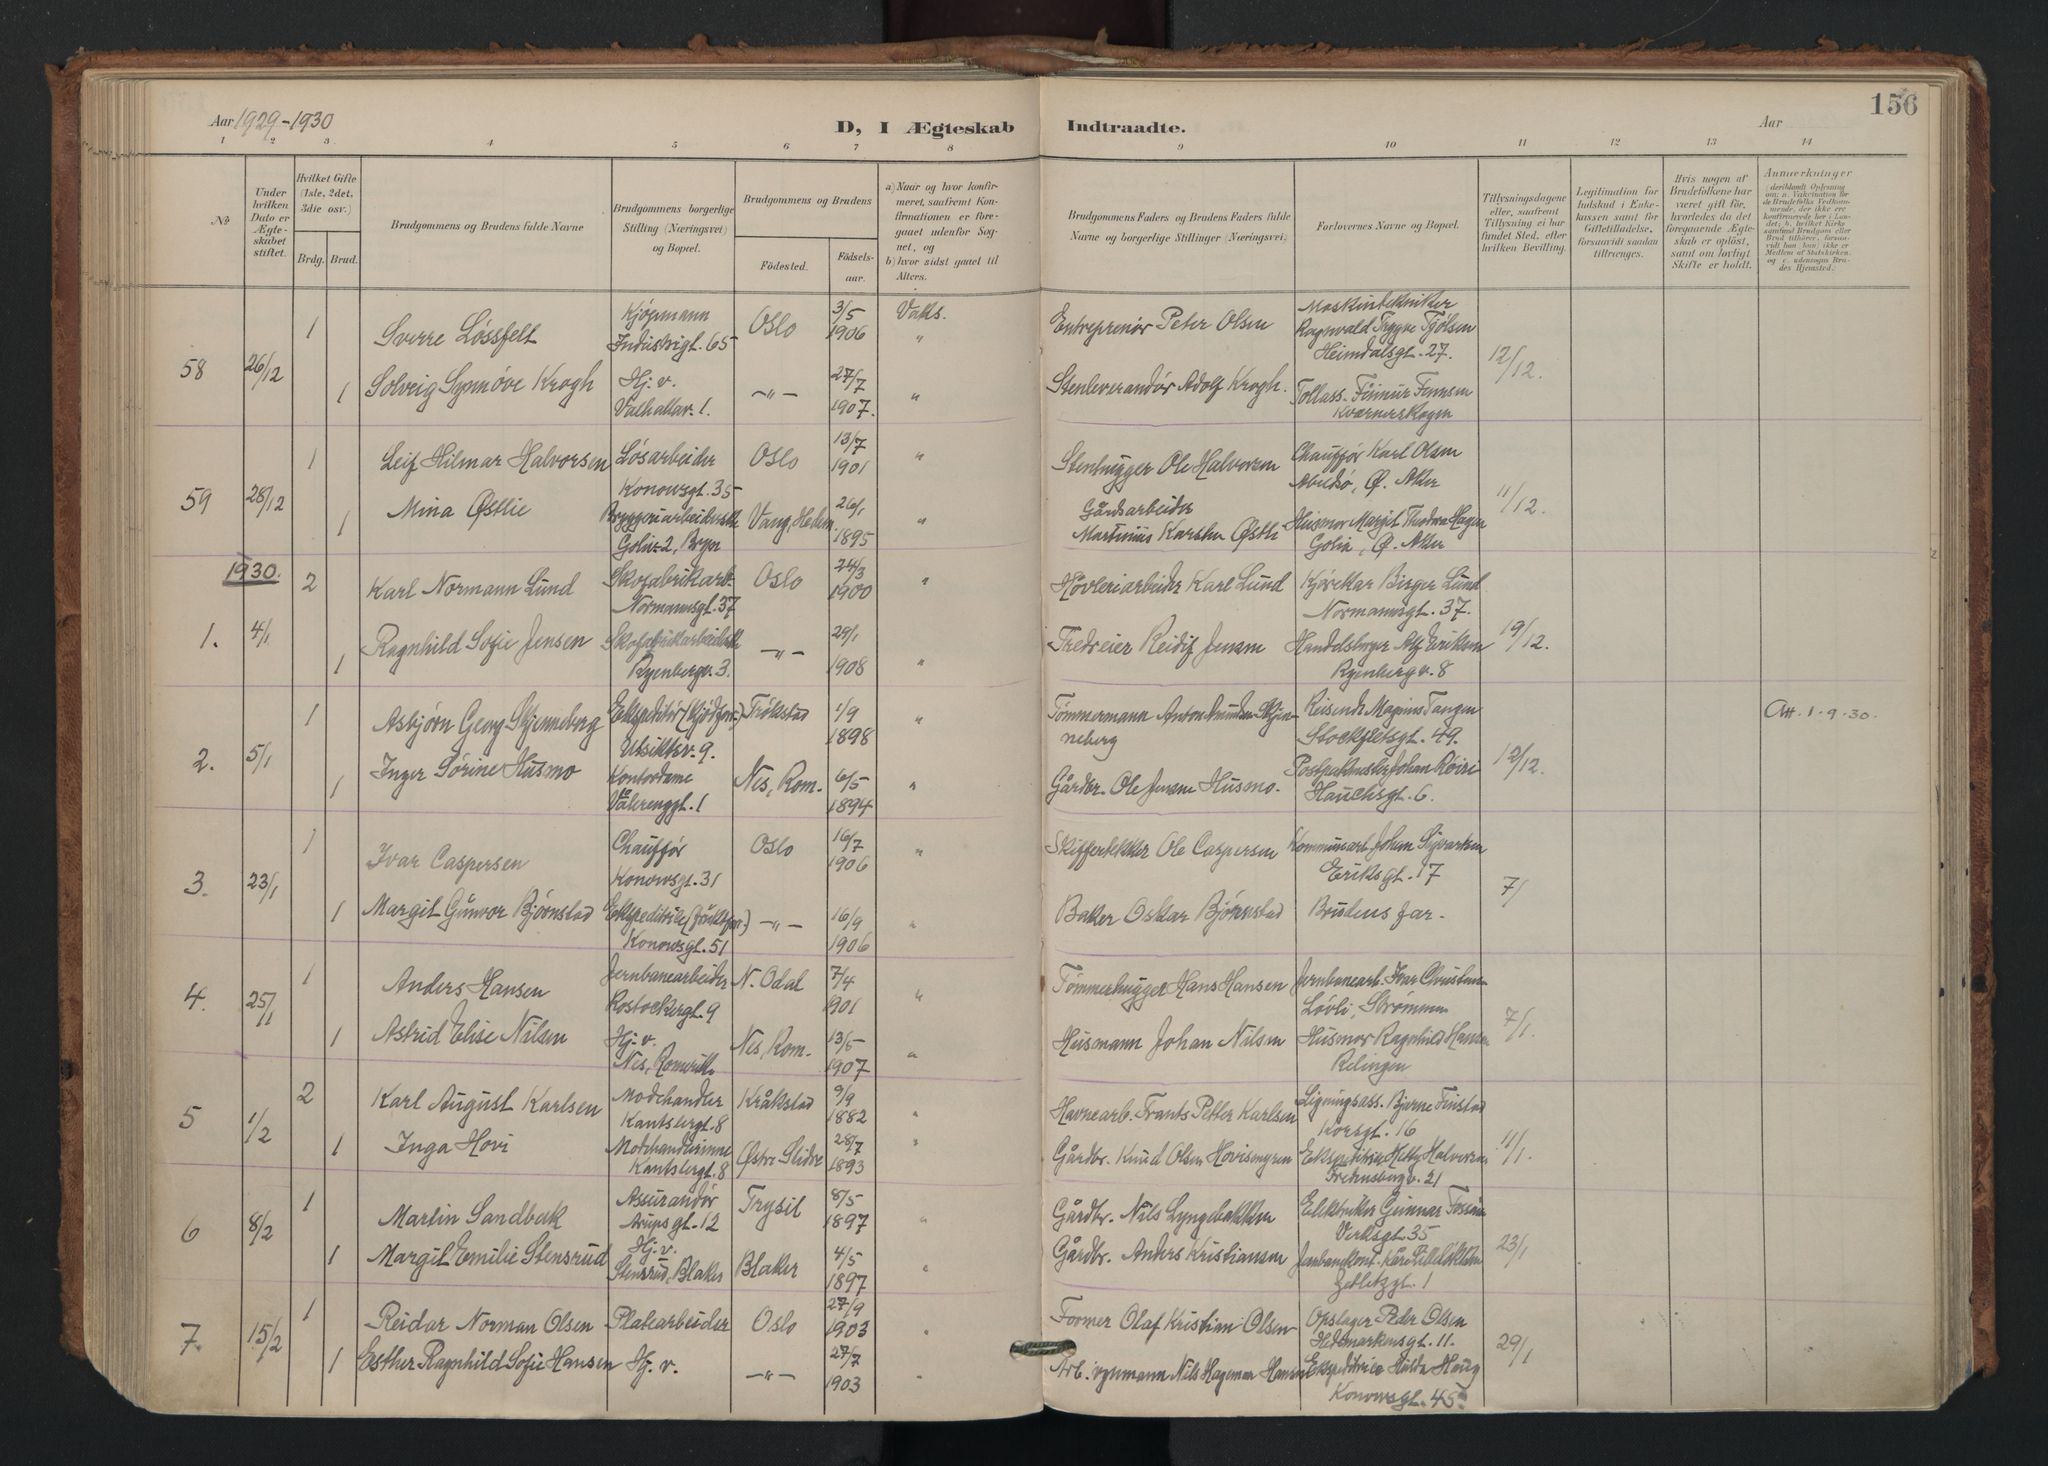 156
Aar 1929-1930
D, I Ægteskab Indtraadte.
Aar
1 2 3 4 5 6 7 8 9 10 11 12 13 14
№
Under hvilken Dato er Ægteskabet stiftet.
Hvilket Gifte (1ste, 2det, 3die osv.)
Brdg. Brud.
Brudgommens og Brudens fulde Navne
Brudgommens borgerlige Stilling (Næringsvei) og Bopæl.
Brudgommens og Brudens
Fødested. Fødselsaar.
a) Naar og hvor konfirmeret, saafremt Konfirmationen er foregaaet udenfor Sognet, og
b) hvor sidst gaaet til Alters.
Brudgommens Faders og Brudens Faders fulde Navne og borgerlige Stillinger (Næringsvei)
Forlovernes Navne og Bopæl.
Tillysningsdagene eller, saafremt Tillysning ei har fundet Sted, efter hvilken Bevilling.
Legitimation for Indskud i Enkekassen samt for Giftetilladelse, forsaavidt saadan tiltrænges.
Hvis nogen af Brudefolkene har været gift før, hvorledes da det foregaaende Ægteskab er opløst, samt om lovligt Skifte er holdt.
Anmerkninger
58 26/12 1 Sverre Løssfelt Kjøpmann Industrigt. 65 Oslo 3/5 1906 Vaks. Entreprenør Peter Olsen Maskintekniker Ragnvald Trygve Tjølsen Heimdalsgt. 27. 12/12.
1 Solveig Synnøve Krogh Hj. v. Valhallav. 1. -"- 27/7 1907. " Stenleverandør Adolf Krogh. Tollass. Finnur Finnsen Kværnerskogen
59 28/12 1 Leif Hilmar Halvorsen Løsarbeider Konowsgt. 35 Oslo 13/7 1901 " Stenhugger Ole Halvorsen Chauffør Karl Olsen Abildsø, Ø. Aker 11/12.
1 Mina Østlie Bryggeriarbeiderske Golia 2, Bryn Vang, Hedm. 26/1 1895 " Gårdsarbeider Martinius Karsten Østli Husmor Margit Theodora Hagen Golia, Ø. Aker
1930.
1. 4/1 2 Karl Normann Lund Skofabrikarb. Normannsgt. 37 Oslo 24/3 1900 " Høvleriarbeider Karl Lund Kjørekar Birger Lund Normannsgt. 37. 19/12.
1 Ragnhild Sofie Jensen Skofabrikkarbeiderske Ryenbergv. 3. -"- 29/1 1908 " Tredreier Reidif Jensen Handelsborger Alf Eriksen Ryenbergv. 8
2. 5/1 1 Asbjørn Georg Skjenneberg Ekspeditør (Kjødforr.) Utsiktsv. 9. Trøkstad 1/9 1898 " Tømmermann Anton Amundsen Skjenneberg Reisende Magnus Tangen Stockfletsgt. 49. 12/12. Att. 1.9.30.
1 Inger Sørine Husmo Kontordame Vålerenggt. 1 Nes, Rom. 6/5 1894 " Gårdbr. Ole Jensen Husmo. Johan Røiri Hauchsgt. 6.
3. 23/1 1 Ivar Caspersen Chauffør Konowsgt. 31 Oslo 16/7 1906 " Skiffertekker Ole Caspersen Kommunearb. Johan Sivartsen Eriksgt. 17 7/1
1 Margit Gunvor Bjørnstad Ekspeditrise (fruktforr.) Konowsgt. 51 -"- 16/9 1906 " Baker Oskar Bjørnstad Brudens far.
4. 25/1 1 Anders Hansen Jernbanearbeider Rostockergt. 9 N. Odal 7/4 1901 " Tømmerhugger Hans Hansen Jernbanearb. Ivar Christensen Løvli, Strømmen 7/1.
1 Astrid Elise Nilsen Hj. v. Nes, Romerike Nes, Rom. 13/5 1907 " Husmann Johan Nilsen Husmor Ragnhild Hansen Relingen
5 1/2 2 Karl August Karlsen Modehandler Kantslergt. 8 Kråkstad 9/9 1882 " Havnearb. Frants Petter Karlsen Ligningsass. Bjarne Finstad Korsgt. 16 11/1.
1 Inga Hovi Modehandlerinne Kantslergt. 8 Østre Slidre 28/7 1893 " Gårdbr. Knud Olsen Hovismyren Ekspeditrise Hetty Halvorsen Fredensborgv. 21
6 8/2 1 Martin Sandbak Assurandør Arupsgt. 12 Trysil 8/5 1897 " Gårdbr. Nils Lyngbakken Elektriker Gunnar Fossum Verksgt. 35 23/1
1 Margit Emilie Stensrud Hj. v. Stensrud, Blaker Blaker 4/5 1897 " Gårdbr. Anders Kristiansen Jernbanekont. Kåre Gebletzgt. 1
7. 15/2 1 Reidar Norman Olsen Platearbeider Oslo 27/9 1903 " Former Olaf Kristian Olsen Opslager Peder Olsen Hedemarkensgt. 11. 29/1
1 Esther Ragnhild Sofie Hansen Hj. v. -"- 27/7 1903 " Nils Hageman Hansen Ekspeditrise Hulda Haug Konowsgt. 45.